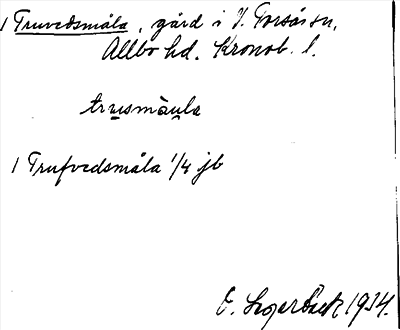 1 Truvedsmåla, gård i V. Torsås sn,
Allbo hd. Kronob. l.
trusmåula
1 Trufvedsmåla 1/4 jb
E. Legerbäck 1934.